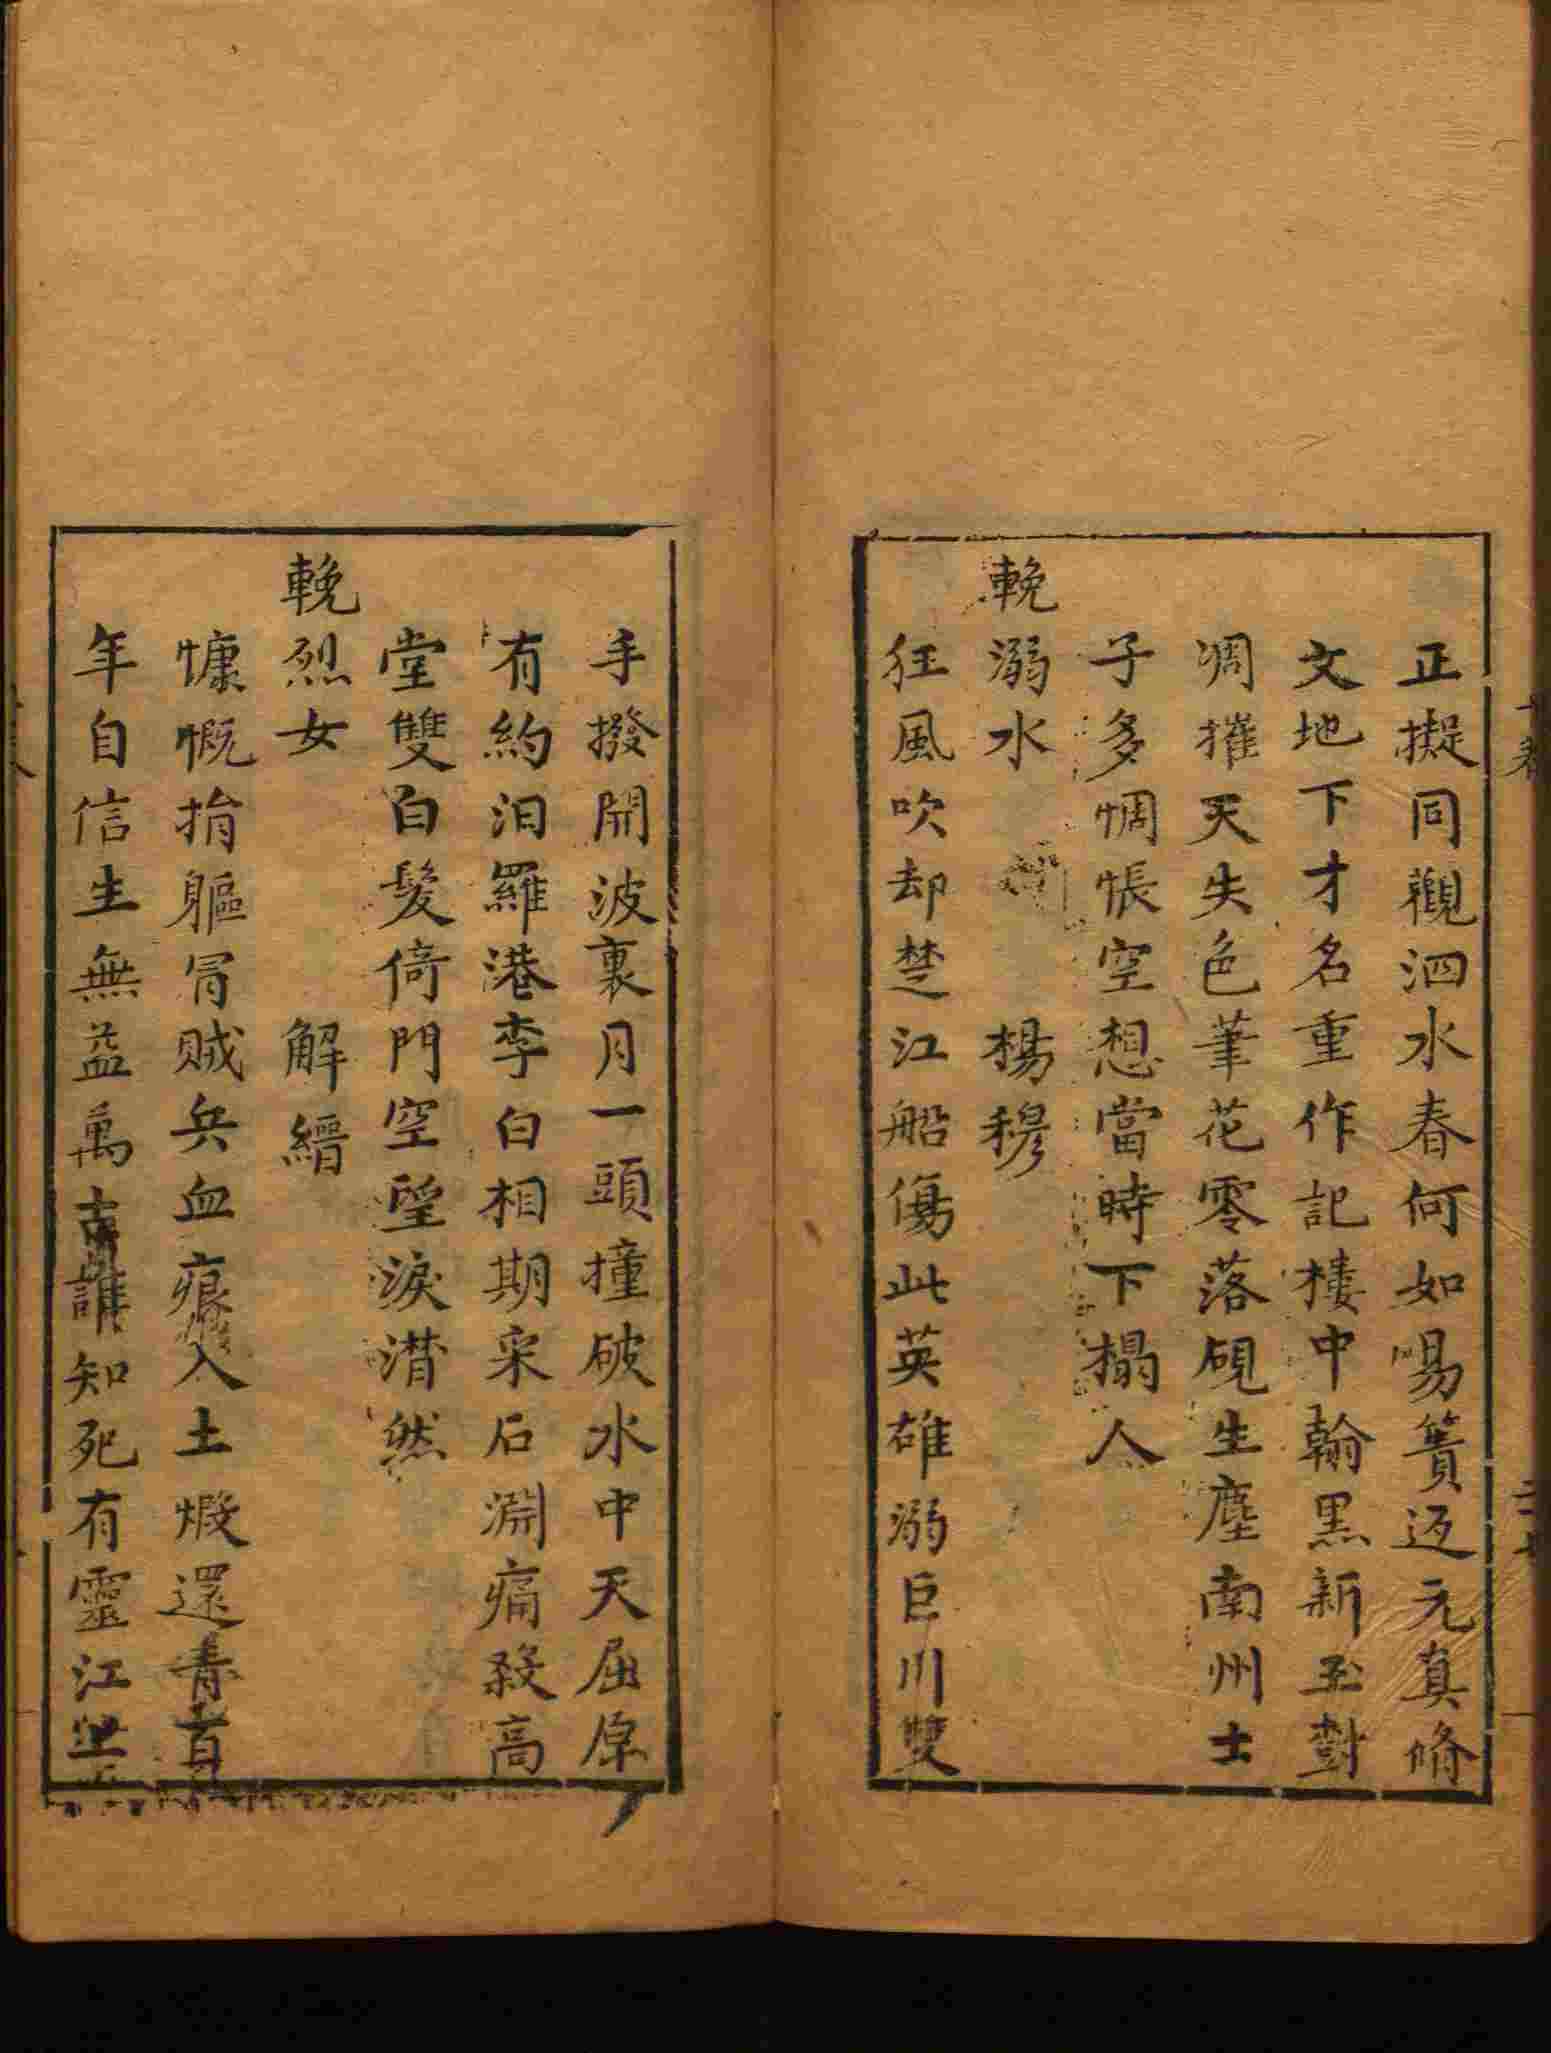 正擬同觀泗水春何如昜簀返元真脩
文地下才名重作記樓中翰黒新玉對
凋摧天失色筆花零落硯生塵南州士
子多惆悵空想當時下榻人
輓溺水　楊穆
狂風吹却楚江船傷此英雄溺巨川雙
手撥開波裏月一頭撞破水中天屈原
有約汨羅港李白相期采石淵痛殺高
堂雙白髮倚門空望淚潸然
輓烈女　解縉
慷慨捐軀冐賊兵血痕入土煅還青百
年自信生無益萬古誰知死有靈江上